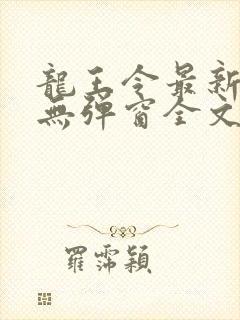 龍王令最新
無彈窗全文
羅霈穎